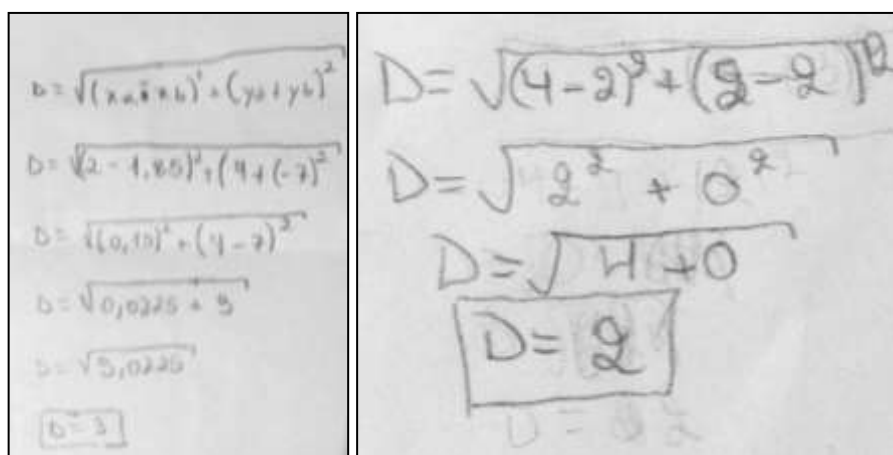 D = √(xa - xb)² + (ya + yb)²
D = √(2 - 1,85)² + (4 + (-7)²
D = √(0,15)² + (4 - 7)²
D = √0,0225 + 9
D = √9,0225
D = 3
D = √(4 - 2)² + (2 - 2)²
D = √2² + 0²
D = √4 + 0
D = 2